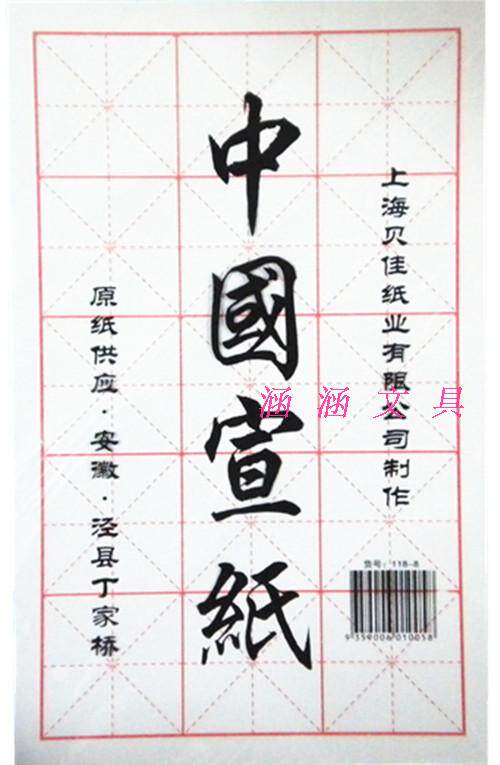 中國宣紙
上海贝佳纸业有限公司制作
原纸供应·安徽·泾县丁家桥
涵涵文具
货号：118-8
9359006010058